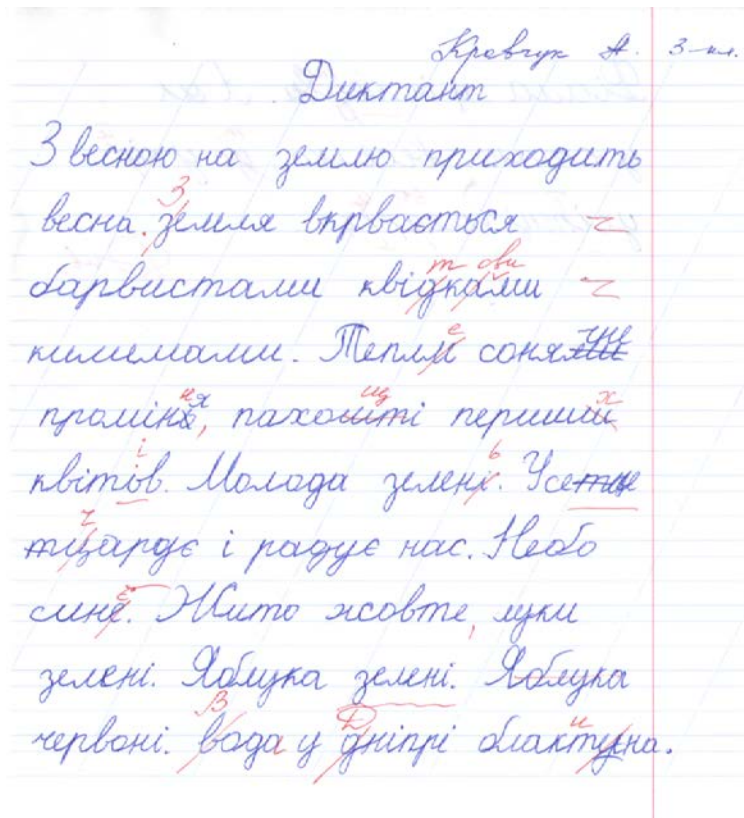 Кравчук А. 3-кл.
Диктант
З весною на землю приходить
весна. земля вкрвається
барвистами квідками
килимами. Теплі соня
проміня, пахошті перший
квітов. Молода зелені. Усе
тщардє і радує нас. Небо
сине. Жито жовте, луки
зелені. Яблука зелені. Яблука
червоні. вода у дніпрі блактуна.